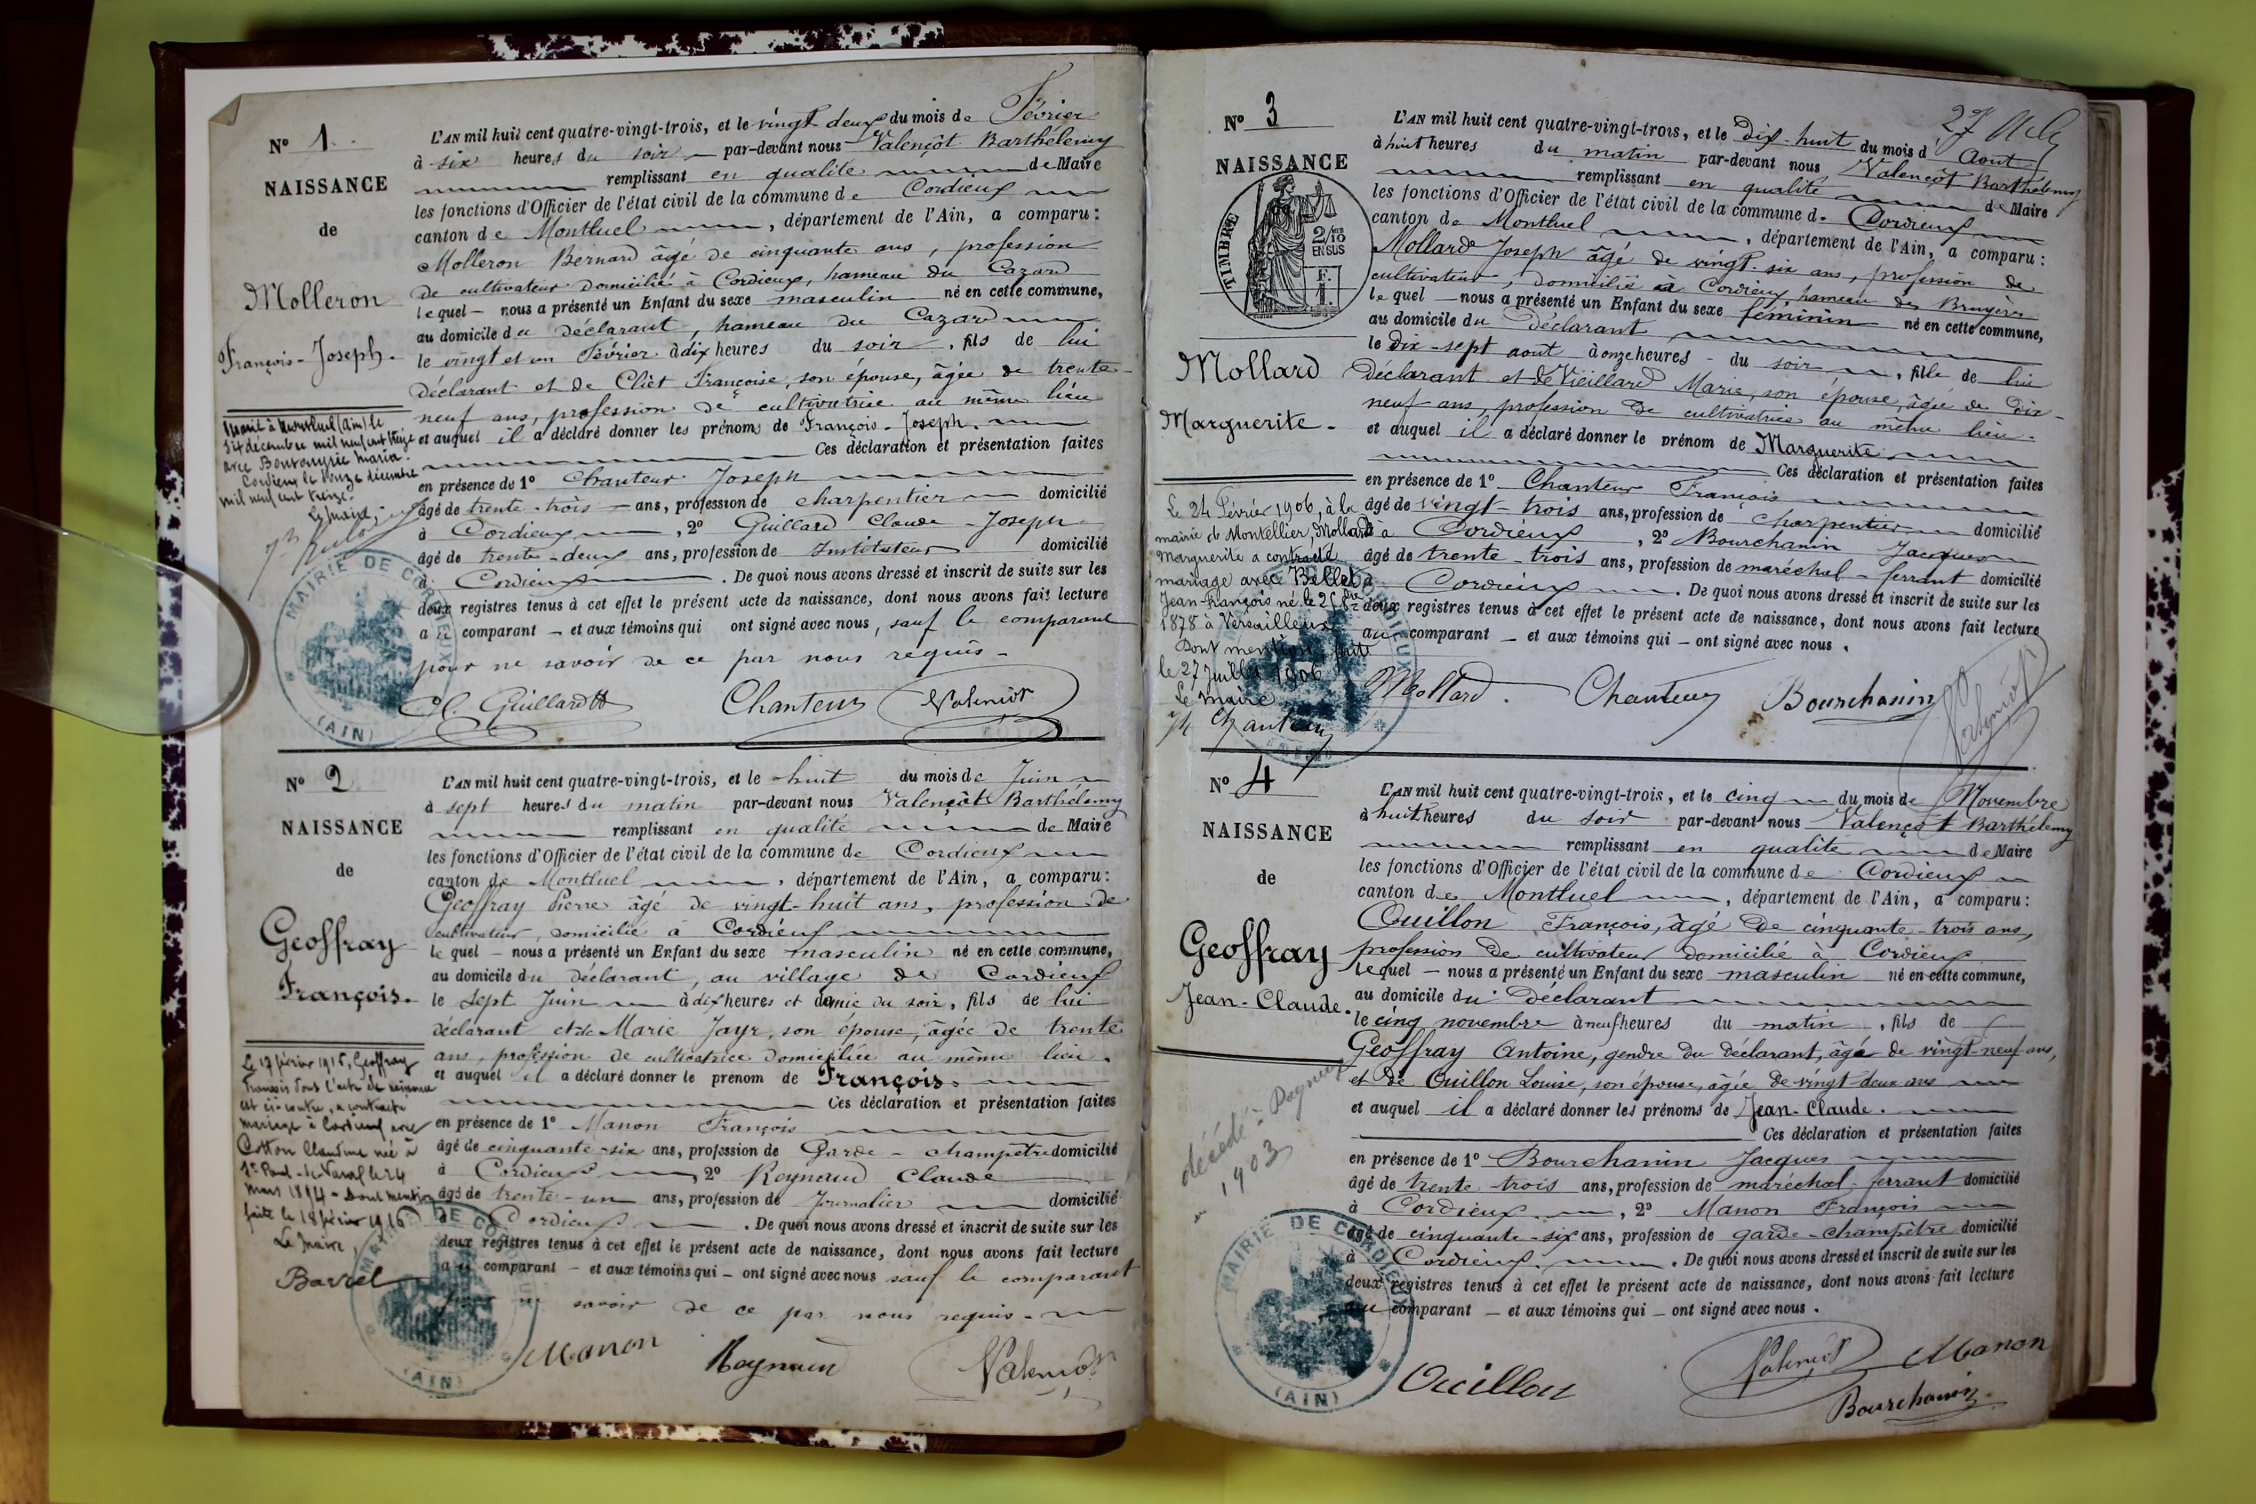 N° 1
NAISSANCE
de
Molleron
François-Joseph.
L'AN mil huit cent quatre-vingt-trois, et le vingt deux du mois de Février
à six heures du soir par-devant nous Valençôt Barthélemy
remplissant en qualité de Maire
les fonctions d'Officier de l'état civil de la commune de Cordieux
canton de Montluel, département de l'Ain, a comparu :
Molleron Bernard âgé de cinquante ans, profession
de cultivateur domicilié à Cordieux, hameau du Cazard
lequel nous a présenté un Enfant du sexe masculin né en cette commune,
au domicile du déclarant, hameau du Cazard
le vingt et un Février à dix heures du soir, fils de lui
déclarant et de Clièt Françoise, son épouse, âgée de trente-
neuf ans, profession de cultivatrice au même lieu
et auquel il a déclaré donner les prénoms de François-Joseph.
Ces déclaration et présentation faites
en présence de 1° Chanteur Joseph
âgé de trente-trois ans, profession de charpentier domicilié
à Cordieux, 2° Guillard Claude-Joseph
âgé de trente-deux ans, profession de Instituteur domicilié
à Cordieux. De quoi nous avons dressé et inscrit de suite sur les
deux registres tenus à cet effet le présent acte de naissance, dont nous avons fait lecture
au comparant et aux témoins qui ont signé avec nous, sauf le comparant
pour ne savoir de ce par nous requis.
Marié à Montluel (Ain) le
six décembre mil neuf cent treize
avec Maria.
Cordieux le douze décembre
mil neuf cent treize.
Le Maire,
MAIRIE DE CORDIEUX
(AIN)
Cl. Guillard Chanteur Valençôt
N° 2
NAISSANCE
de
Geoffray
François.
L'AN mil huit cent quatre-vingt-trois, et le huit du mois de Juin
à sept heures du matin par-devant nous Valençôt Barthélemy
remplissant en qualité de Maire
les fonctions d'Officier de l'état civil de la commune de Cordieux
canton de Montluel, département de l'Ain, a comparu :
Geoffray Pierre âgé de vingt-huit ans, profession de
cultivateur, domicilié à Cordieux
lequel nous a présenté un Enfant du sexe masculin né en cette commune,
au domicile du déclarant, au village de Cordieux
le sept Juin à dix heures et demie du soir, fils de lui
déclarant et de Marie Jayr, son épouse, âgée de trente
ans, profession de cultivatrice domiciliée au même lieu.
et auquel il a déclaré donner le prenom de François.
Ces déclaration et présentation faites
en présence de 1° Manon François
âgé de cinquante-six ans, profession de Garde-champêtre domicilié
à Cordieux 2° Reynaud Claude
âgé de trente-un ans, profession de Journalier domicilié
à Cordieux. De quoi nous avons dressé et inscrit de suite sur les
deux registres tenus à cet effet le présent acte de naissance, dont nous avons fait lecture
au comparant et aux témoins qui ont signé avec nous sauf le comparant
pour ne savoir de ce par nous requis.
Le 17 février 1916, Geoffray
François dont l'acte de naissance
est ci-contre, a contracté
mariage à Cordieux avec
Cotton Claudine née à
St Paul-de-Varax le 24
mars 1894 - Dont mention
faite le 18 février 1916
Le Maire,
Barrel
MAIRIE DE CORDIEUX
(AIN)
Manon Reynaud Valençôt
27
N° 3
NAISSANCE
TIMBRE
2/10 EN SUS
Mollard
Marguerite.
L'AN mil huit cent quatre-vingt-trois, et le Dix-huit du mois d'Aout
à huit heures du matin par-devant nous Valençôt Barthélemy
remplissant en qualité de Maire
les fonctions d'Officier de l'état civil de la commune de Cordieux
canton de Montluel, département de l'Ain, a comparu :
Mollard Joseph âgé de vingt-six ans, profession de
cultivateur, domicilié à Cordieux, hameau des Bruyères
lequel nous a présenté un Enfant du sexe féminin né en cette commune,
au domicile du déclarant
le Dix-sept aout à onze heures du soir, fille de lui
déclarant et de Vieillard Marie, son épouse, âgée de dix-
neuf ans, profession de cultivatrice au même lieu.
et auquel il a déclaré donner le prénom de Marguerite
Ces déclaration et présentation faites
en présence de 1° Chanteur François
âgé de vingt-trois ans, profession de charpentier domicilié
à Cordieux, 2° Bourchanin Jacques
âgé de trente-trois ans, profession de maréchal-ferrant domicilié
à Cordieux. De quoi nous avons dressé et inscrit de suite sur les
deux registres tenus à cet effet le présent acte de naissance, dont nous avons fait lecture
au comparant et aux témoins qui ont signé avec nous.
Le 24 Février 1906, à la
mairie de Montellier, Mollard
Marguerite a contracté
mariage avec Bellet
Jean-François né le 25 8bre
1878 à Versailleux
Dont mention faite
le 27 juillet 1906
Le Maire
Chanteur
Mollard. Chanteur Bourchanin Valençôt
N° 4
NAISSANCE
de
Geoffray
Jean-Claude.
L'AN mil huit cent quatre-vingt-trois, et le cinq du mois de Novembre
à huit heures du soir par-devant nous Valençôt Barthélemy
remplissant en qualité de Maire
les fonctions d'Officier de l'état civil de la commune de Cordieux
canton de Montluel, département de l'Ain, a comparu :
Ouillon François, âgé de cinquante-trois ans,
profession de cultivateur domicilié à Cordieux
lequel nous a présenté un Enfant du sexe masculin né en cette commune,
au domicile du déclarant
le cinq novembre à neuf heures du matin, fils de
Geoffray Antoine, gendre du déclarant, âgé de vingt-neuf ans,
et de Ouillon Louise, son épouse, âgée de vingt-deux ans
et auquel il a déclaré donner les prénoms de Jean-Claude.
Ces déclaration et présentation faites
en présence de 1° Bourchanin Jacques
âgé de trente-trois ans, profession de maréchal-ferrant domicilié
à Cordieux, 2° Manon François
âgé de cinquante-six ans, profession de garde-champêtre domicilié
à Cordieux. De quoi nous avons dressé et inscrit de suite sur les
deux registres tenus à cet effet le présent acte de naissance, dont nous avons fait lecture
au comparant et aux témoins qui ont signé avec nous.
décédé à Dagneux
en 1903
MAIRIE DE CORDIEUX
(AIN)
Ouillon Valençôt Manon
Bourchanin